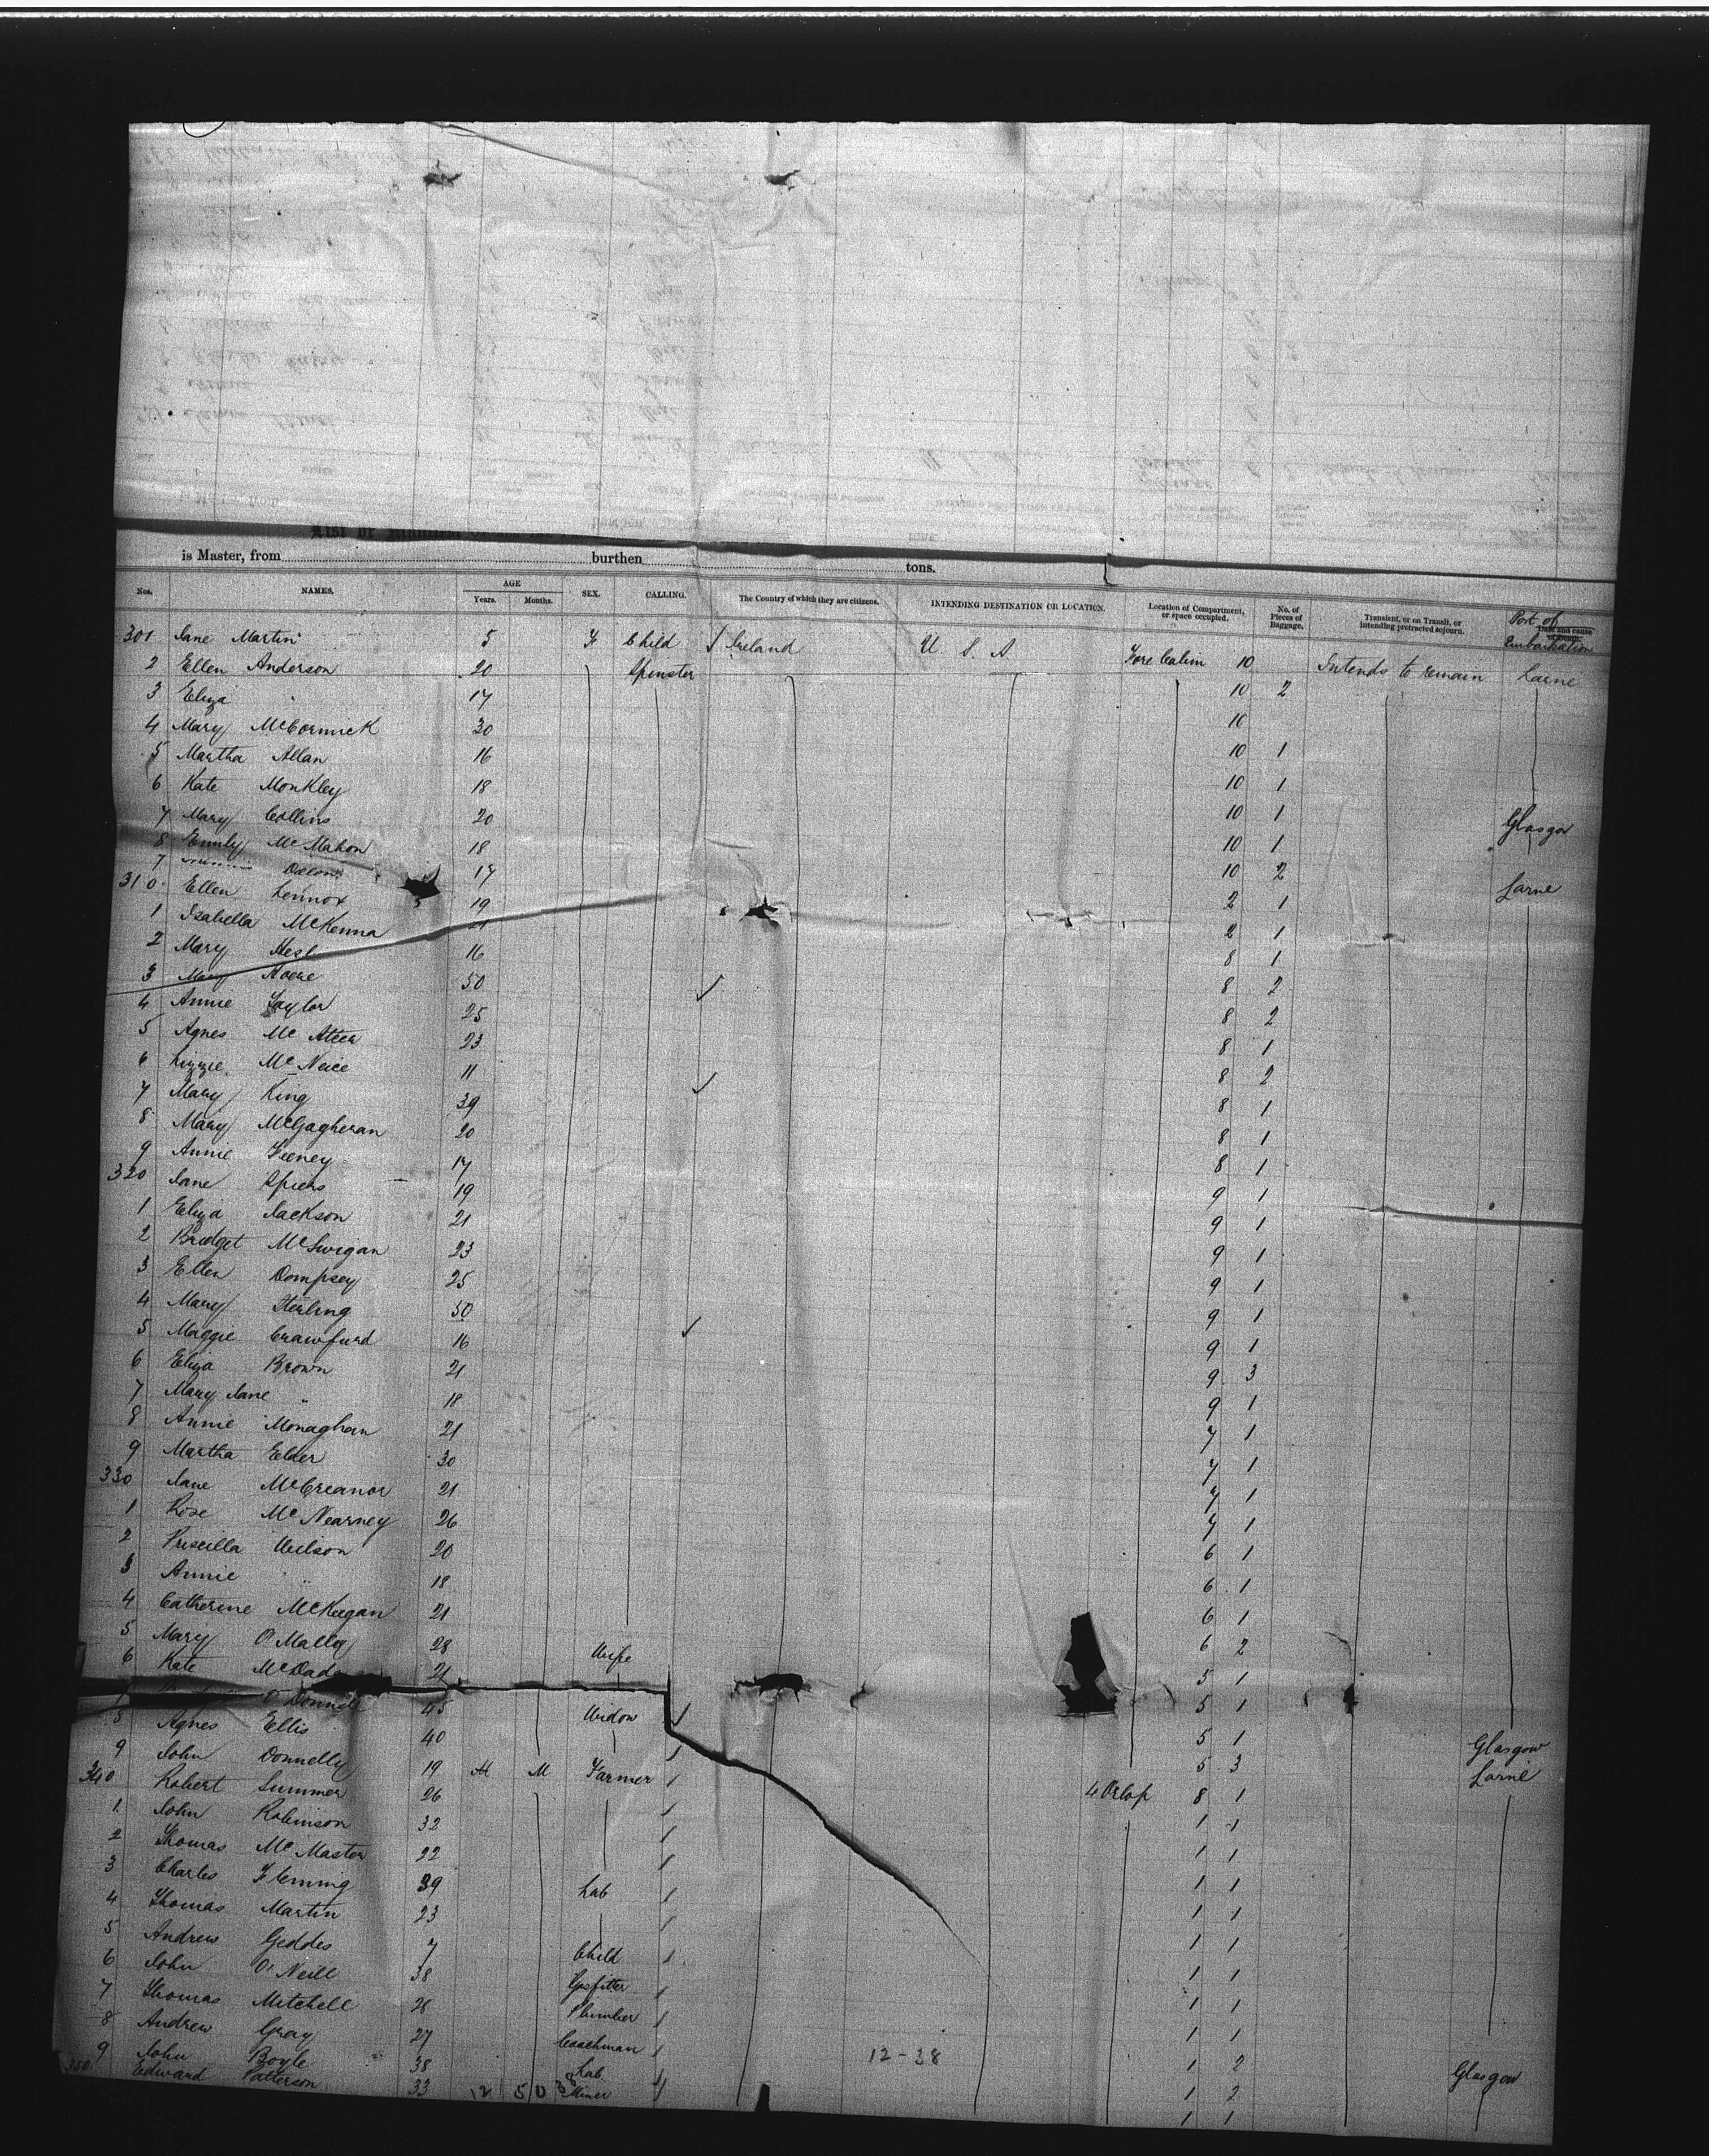 is Master, from burthen tons.
Nos. NAMES. AGE Years. Months. SEX. CALLING. The Country of which they are citizens. INTENDING DESTINATION OR LOCATION. Location of Compartment, or space occupied. No. of Pieces of Baggage. Transient, or on Transit, or intending protracted sojourn. Port of Embarkation
301 Jane Martin 5 F Child Ireland U. S. A. Fore Cabin 10 Intends to remain Larne
2 Ellen Anderson 20 Spinster 10 2
3 Eliza " 17 10
4 Mary McCormick 30 10 1
5 Martha Allan 16 10 1
6 Kate Monkley 18 10 1 Glasgow
7 Mary Collins 20 10 1
8 Emily McMahon 18 10 2 Larne
9 17 2 1
310 Ellen Lennox 19 2 1
1 Isabella McKenna 21 8 1
2 Mary 16 8 2
3 Mary 50 8 2
4 Annie Taylor 25 8 1
5 Agnes McAteer 23 8 2
6 Lizzie McNeice 11 8 1
7 Mary King 39 8 1
8 Mary McGagheran 20 8 1
9 Annie Feeney 17 9 1
320 Jane Spiers 19 9 1
1 Eliza Jackson 21 9 1
2 Bridget McSwigan 23 9 1
3 Ellen Dompsey 25 9 1
4 Mary Sterling 50 9 1
5 Maggie Crawfurd 16 9 3
6 Eliza Brown 21 9 1
7 Mary Jane " 18 7 1
8 Annie Monaghan 21 7 1
9 Martha Elder 30 7 1
330 Jane McCreanor 21 7 1
1 Rose McNearney 26 6 1
2 Priscilla Wilson 20 6 1
3 Annie " 18 6 1
4 Catherine McKeegan 21 6 2
5 Mary O'Malley 28 Wife 5 1
6 Kate McDade 21 5 1
7 O'Donnell 45 Widow 5 1 Glasgow
8 Agnes Ellis 40 5 3 Larne
9 John Donnelly 19 M M Farmer 4 Orlop 8 1
340 Robert Summer 26 1 1
1 John Robinson 32 1 1
2 Thomas McMaster 22 1 1
3 Charles Fleming 39 Lab 1 1
4 Thomas Martin 23 1 1
5 Andrew Geddes 7 Child 1 1
6 John O'Neill 38 Gasfitter 1 1
7 Thomas Mitchell 28 Plumber 1 1
8 Andrew Gray 27 Coachman 1 2 Glasgow
9 John Boyle 38 Lab 12-38 1 2
350 Edward Patterson 33 Miner 1 1